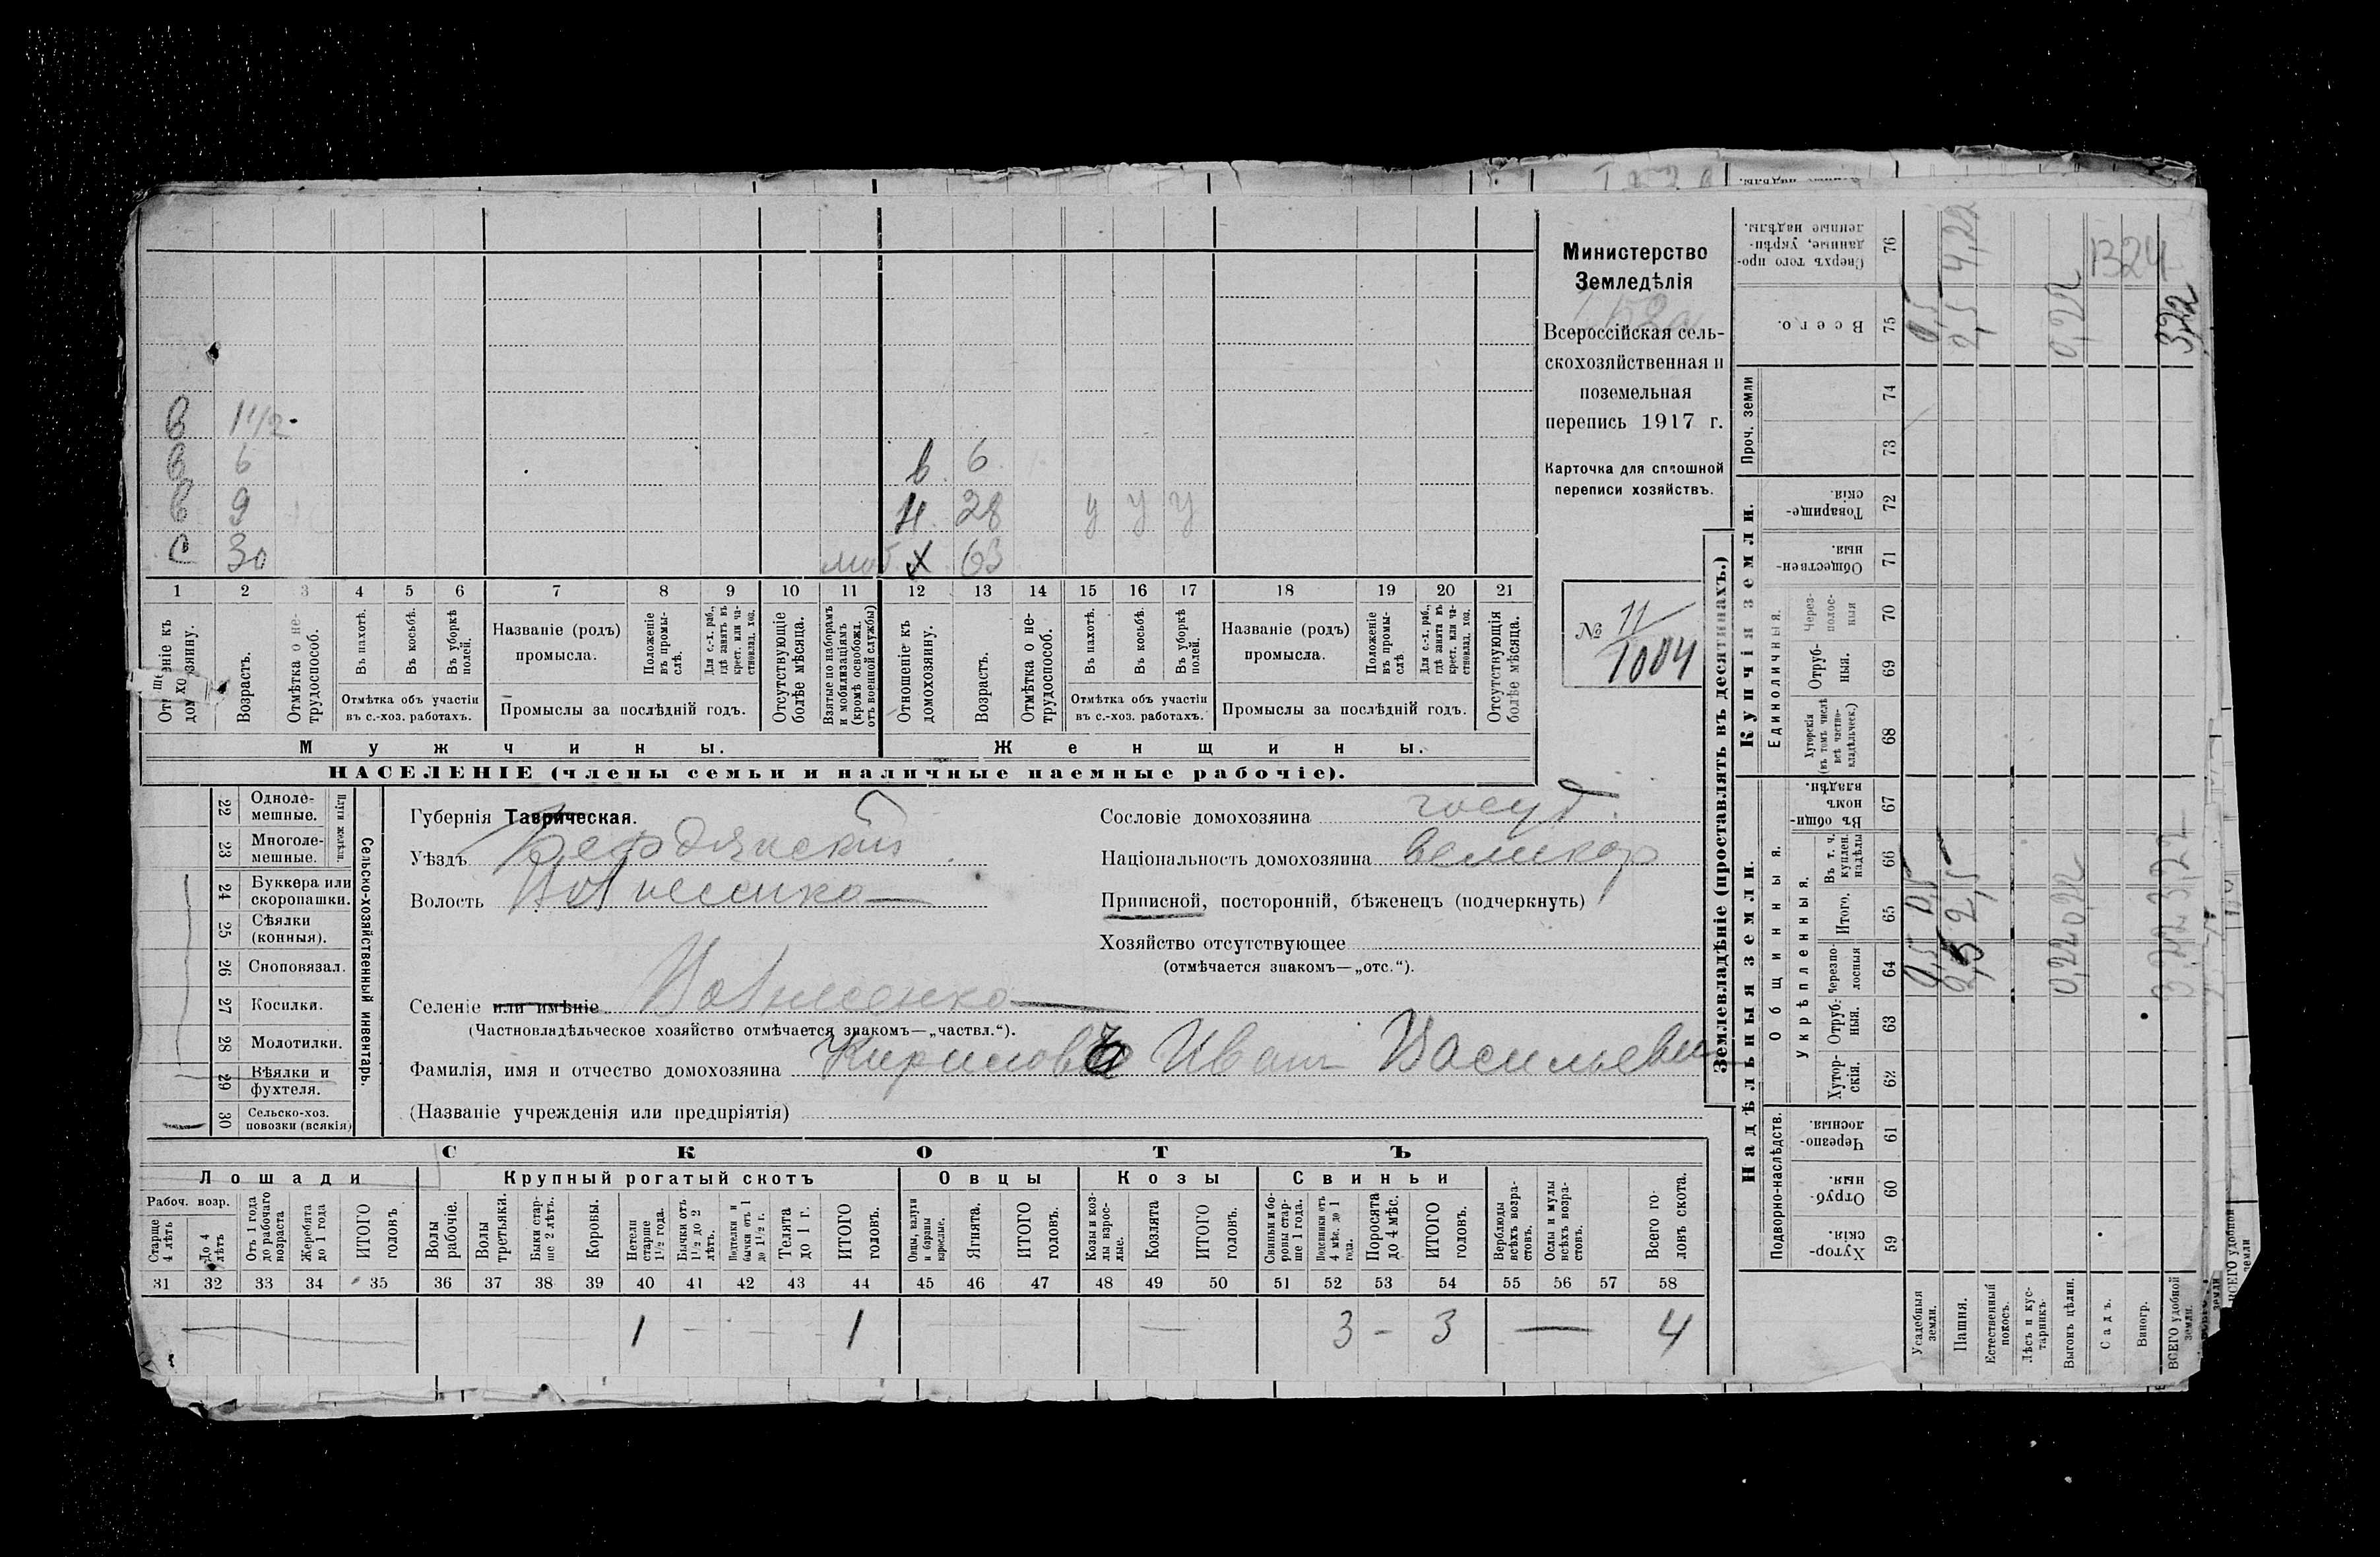 Министерство
Земледѣлія
Всероссійская сель-
скохозяйственная и
поземельная
перепись 1917 г.
Карточка для сплошной
переписи хозяйствъ.
№ 11/1004
в 1 1/2
в 6 в 6
в 9 н 28 у у у
с 30 моб х 63
1 2 3 4 5 6 7 8 9 10 11 12 13 14 15 16 17 18 19 20 21
Отношеніе къ домохозяину.
Возрастъ.
Отмѣтка о не-
трудоспособ.
Въ пахотѣ.
Въ косьбѣ.
Въ уборкѣ полей.
Отмѣтка объ участіи
въ с.-хоз. работахъ.
Названіе (родъ)
промысла.
Положеніе въ промы-
слѣ.
Для с.-х. раб., гдѣ занятъ въ крест. или ча-
стновлад. хоз.
Промыслы за послѣдній годъ.
Отсутствующіе болѣе мѣсяца.
Взятые по наборамъ и мобилизаціямъ (кромѣ освобожд. отъ военной службы)
Отношеніе къ домохозяину.
Возрастъ.
Отмѣтка о не-
трудоспособ.
Въ пахотѣ.
Въ косьбѣ.
Въ уборкѣ полей.
Отмѣтка объ участіи
въ с.-хоз. работахъ.
Названіе (родъ)
промысла.
Положеніе въ промы-
слѣ
Для с.-х. раб., гдѣ занята въ крест. или ча-
стновлад. хоз.
Промыслы за послѣдній годъ.
Отсутствующія болѣе мѣсяца.
Мужчины. Женщины.
НАСЕЛЕНІЕ (члены семьи и наличные наемные рабочіе).
22 Одноле-
мешные.
23 Многоле-
мешные.
24 Буккера или
скоропашки.
25 Сѣялки
(конныя).
26 Сноповязал.
27 Косилки.
28 Молотилки.
29 Вѣялки и
фухтеля.
30 Сельско-хоз.
повозки (всякія)
Плуги желѣзн.
Сельско-хозяйственный инвентарь.
Губернія Таврическая.
Уѣздъ Бердянскій
Волость Вознесенка
Селеніе или имѣніе Вознесенка
(Частновладѣльческое хозяйство отмѣчается знакомъ—„частвл.“).
Фамилія, имя и отчество домохозяина Кириловъ Иванъ Васильеви
(Названіе учрежденія или предпріятія)
Сословіе домохозяина госуд.
Національность домохозяина великор
Приписной, посторонній, бѣженецъ (подчеркнуть)
Хозяйство отсутствующее
(отмѣчается знакомъ—„отс.“).
СКОТЪ
Лошади Крупный рогатый скотъ Овцы Козы Свиньи
Рабоч. возр.
Старше 4 лѣтъ
До 4 лѣтъ
Отъ 1 года до рабочаго возраста
Жеребята до 1 года
ИТОГО головъ.
Волы рабочіе.
Волы третьяки.
Быки стар-
ше 2 лѣтъ.
Коровы.
Нетели старше 1½ года.
Бычки отъ 1½ до 2 лѣтъ.
Подтелки и бычки отъ 1 до 1½ г.
Телята до 1 г.
ИТОГО головъ.
Овцы, валухи и бараны взрослые.
Ягнята.
ИТОГО головъ.
Козы и коз-
лы взрос-
лые.
Козлята
ИТОГО головъ.
Свиньи и бо-
ровы стар-
ше 1 года.
Подсвинки отъ 4 мѣс. до 1 года.
Поросята до 4 мѣс.
ИТОГО головъ.
Верблюды всѣхъ возра-
стовъ.
Ослы и мулы всѣхъ возра-
стовъ.
Всего го-
ловъ скота.
31 32 33 34 35 36 37 38 39 40 41 42 43 44 45 46 47 48 49 50 51 52 53 54 55 56 57 58
— 1 — — 1 — 3 — 3 — 4
Землевладѣніе (проставлять въ десятинахъ.)
Надѣльныя земли. Купчія земли. Проч. земли
Подворно-наслѣдств.
Общинныя.
Укрѣпленныя.
Единоличныя.
Хутор-
скія. 59
Отруб-
ныя. 60
Черезпо-
лосныя. 61
Хутор-
скія. 62
Отруб-
ныя. 63
Черезпо-
лосныя 64
Итого. 65
Въ т. ч. куплен. надѣлы 66
Въ общин-
номъ владѣн. 67
Хуторскія (въ томъ числѣ всѣ частно-
владѣльческ.) 68
Отруб-
ныя. 69
Через-
полос-
ныя 70
Обществен-
ныя. 71
Товарище-
скія. 72
73
74
Всего. 75
Сверхъ того про-
данные, укрѣп-
ленные надѣлы. 76
Усадебныя земли. 0,5 0,5 0,5
Пашня. 2,5 2,5 2,5 4,22
Естественный покосъ.
Лѣсъ и кус-
тарникъ.
Выгонъ цѣлин. 0,22 0,22 0,22
Садъ.
Виногр.
ВСЕГО удобной земли. 3,22 3,22 3,22
1324